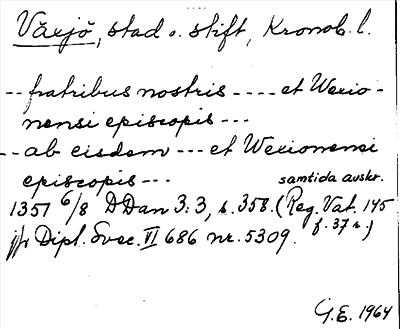 Växjö, stad o. stift, Kronob. l.
-- fratribus nostris ---- et Wexio-
nensi episcopis ---
-- ab eisdem --- et Wexionensi
episcopis ---
samtida avskr.
1351 6/8 DDan 3:3, s. 358. (Reg. Vat. 145
f. 37 r.)
jfr Dipl. Svec. VI 686 nr. 5309.
G.E. 1964